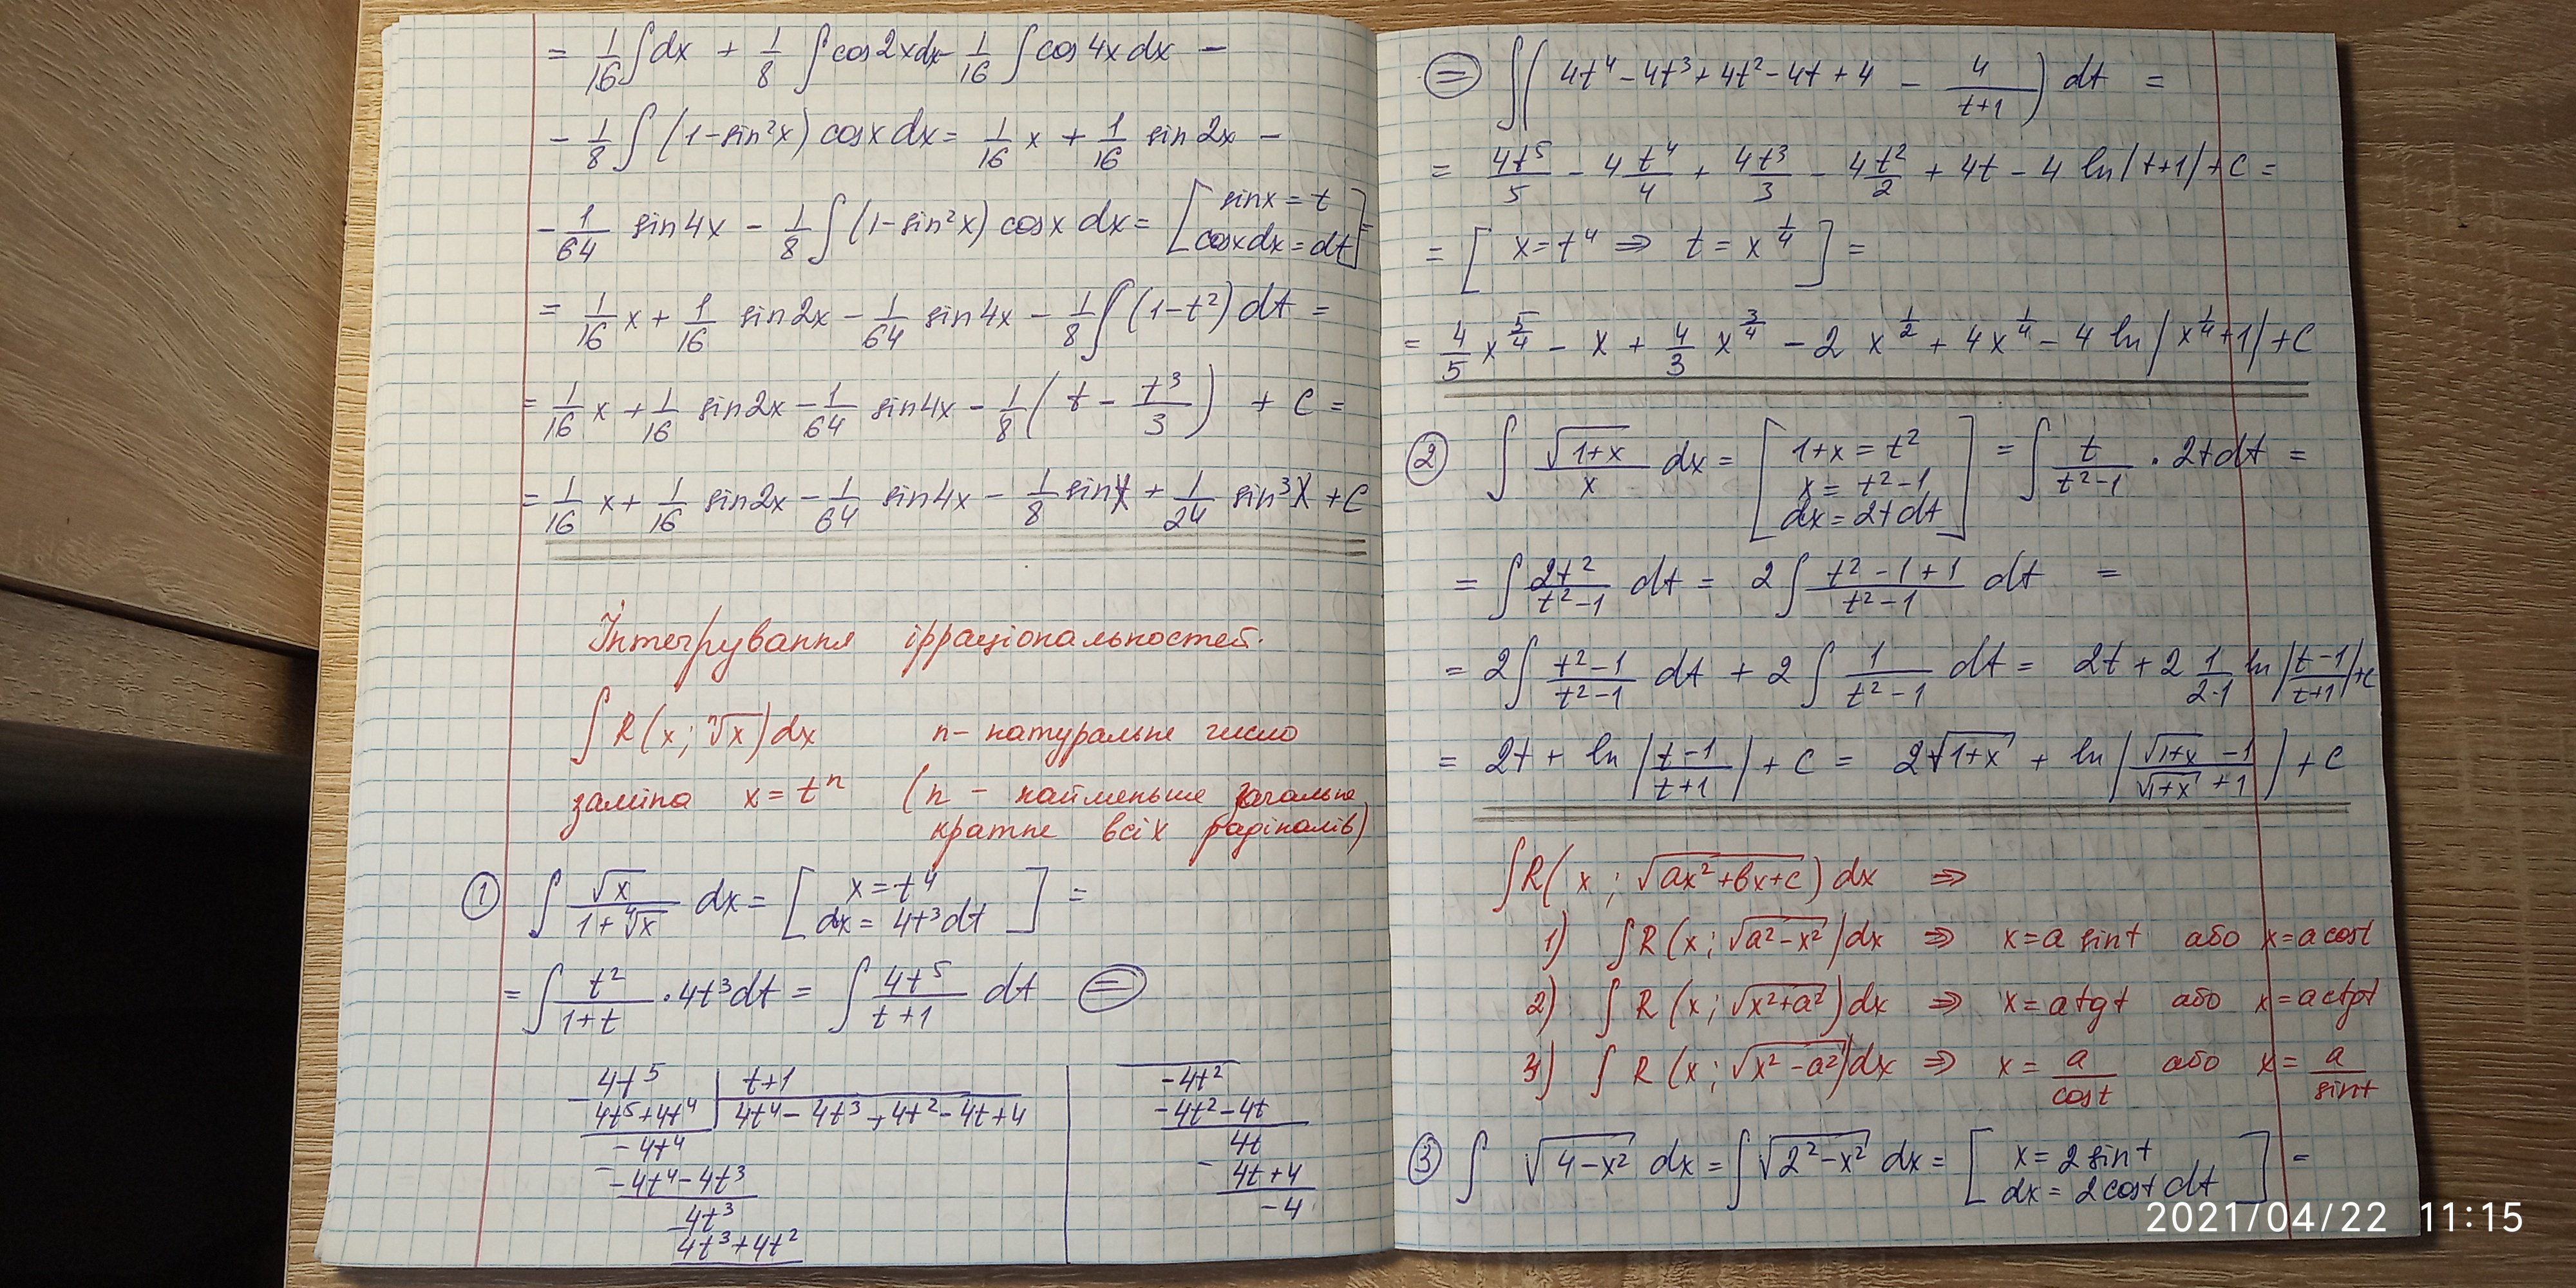 = 1/16 ∫dx + 1/8 ∫cos2xdx - 1/16 ∫cos4xdx -
- 1/8 ∫(1-sin²x) cosxdx = 1/16 x + 1/16 sin2x -
- 1/64 sin4x - 1/8 ∫(1-sin²x) cosx dx = [sinx = t
cosxdx = dt] =
= 1/16 x + 1/16 sin2x - 1/64 sin4x - 1/8 ∫(1-t²) dt =
= 1/16 x + 1/16 sin2x - 1/64 sin4x - 1/8 (t - t³/3) + C =
= 1/16 x + 1/16 sin2x - 1/64 sin4x - 1/8 sinx + 1/24 sin³x + C
Інтегрування ірраціональностей.
∫R(x; ⁿ√x)dx n - натуральне число
заміна x = tⁿ (n - найменьше загальне
кратне всіх радікалів)
① ∫ √x/(1+⁴√x) dx = [x = t⁴
dx = 4t³dt] =
= ∫ t²/(1+t) · 4t³dt = ∫ 4t⁵/(t+1) dt ⊜
- 4t⁵ | t+1
4t⁵+4t⁴ | 4t⁴ - 4t³ + 4t² - 4t + 4
-4t⁴
- -4t⁴ - 4t³
4t³
4t³+4t²
-4t²
-4t² - 4t
4t
- 4t+4
-4
⊜ ∫(4t⁴ - 4t³ + 4t² - 4t + 4 - 4/(t+1)) dt =
= 4t⁵/5 - 4 t⁴/4 + 4t³/3 - 4 t²/2 + 4t - 4 ln|t+1| + C =
= [x = t⁴ ⇒ t = x^(1/4)] =
= 4/5 x^(5/4) - x + 4/3 x^(3/4) - 2 x^(1/2) + 4x^(1/4) - 4 ln|x^(1/4)+1| + C
② ∫ √(1+x)/x dx = [1+x = t²
x = t²-1
dx = 2tdt] = ∫ t/(t²-1) · 2tdt =
= ∫ 2t²/(t²-1) dt = 2∫ (t²-1+1)/(t²-1) dt =
= 2∫ (t²-1)/(t²-1) dt + 2∫ 1/(t²-1) dt = 2t + 2 1/(2·1) ln|(t-1)/(t+1)| + C
= 2t + ln|(t-1)/(t+1)| + C = 2√(1+x) + ln|(√(1+x) -1)/(√(1+x) +1)| + C
∫R(x; √(ax²+bx+c)) dx ⇒
1) ∫R(x; √(a²-x²))dx ⇒ x = a sint або x = a cost
2) ∫R(x; √(x²+a²))dx ⇒ x = a tgt або x = a ctgt
3) ∫R(x; √(x²-a²))dx ⇒ x = a/cost або x = a/sint
③ ∫ √(4-x²) dx = ∫√(2²-x²) dx = [x = 2 sint
dx = 2cost dt] =
2021/04/22 11:15